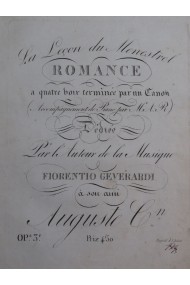 La Leçon du Menestrel
ROMANCE
a quatre voix terminée par un Canon
Accompagnement de Piano par M. A. R.
Dédiée
Par l'Auteur de la Musique
FIORENTIO GEVERARDI
à son ami
Auguste C.n
OP.a 3.e Prix 4.f 50